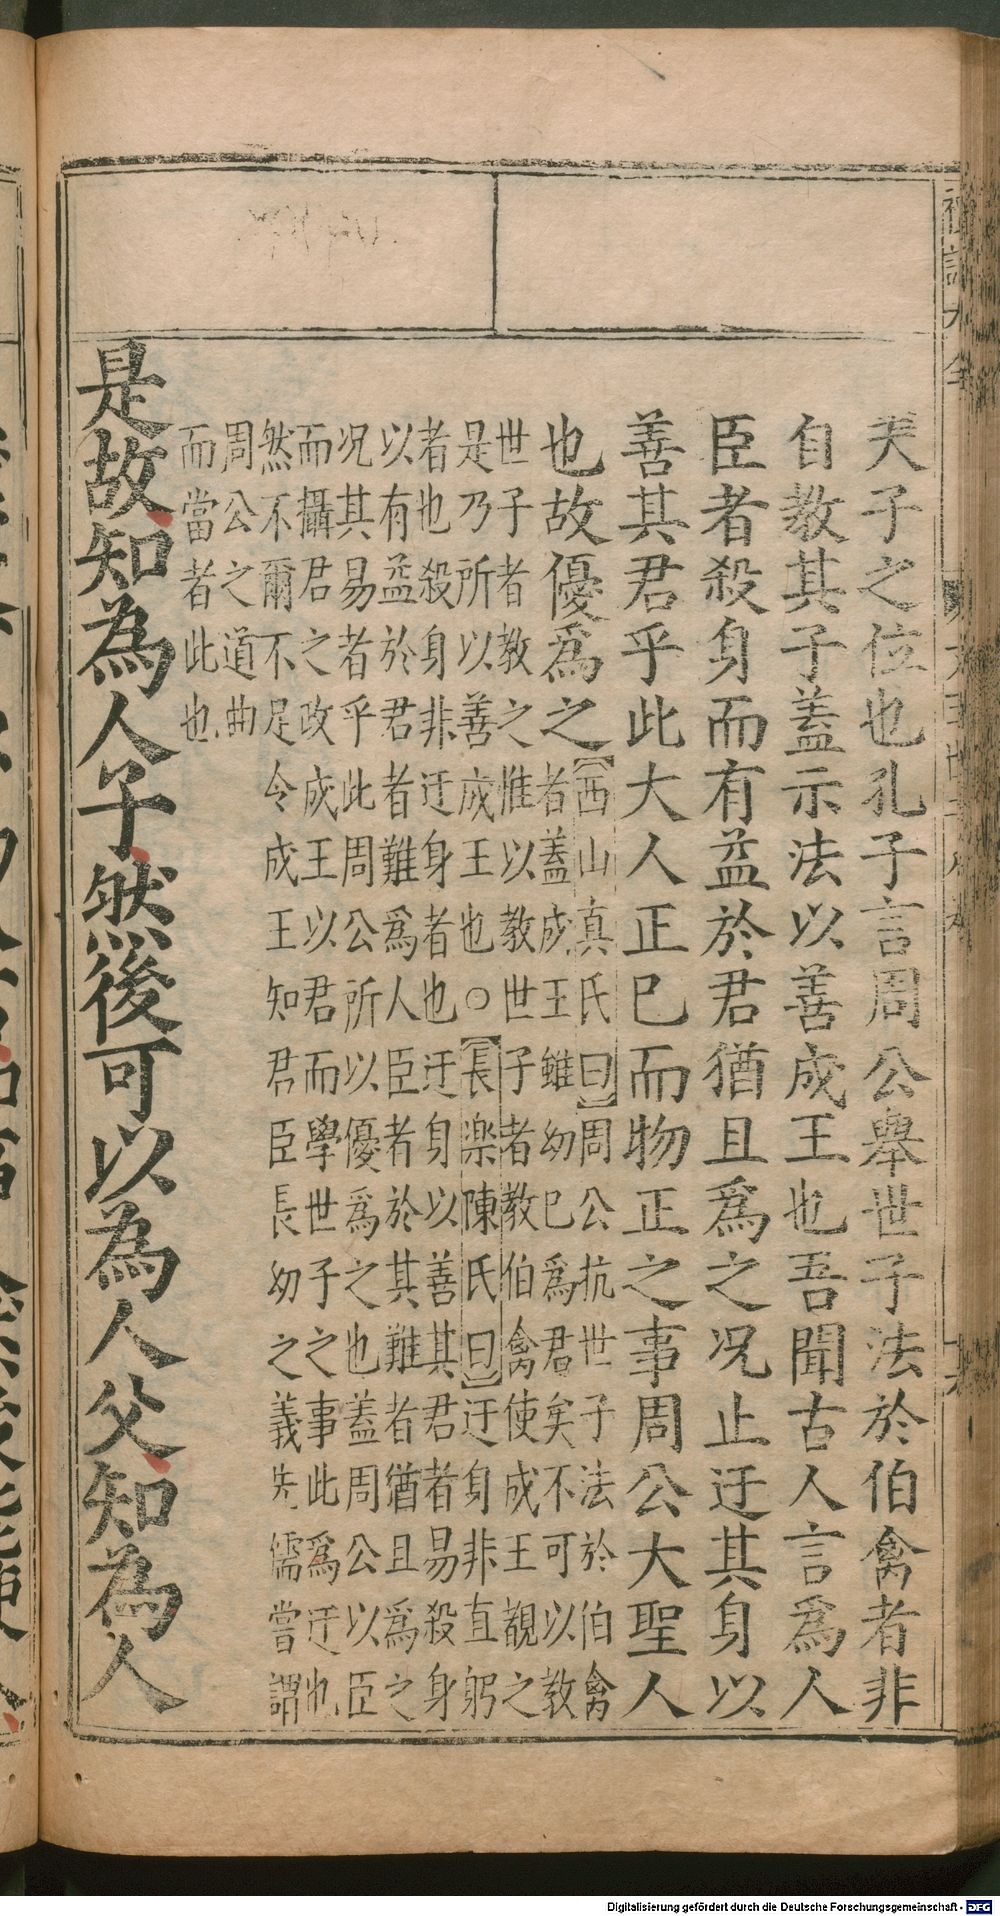 禮記大全
天子之位也孔子言周公舉世子法於伯禽者非
自教其子蓋示法以善成王也吾聞古人言爲人
臣者殺身而有益於君猶且爲之况止迂其身以
善其君乎此大人正巳而物正之事周公大聖人
也故優爲之
【西山真氏曰】周公抗世子法於伯禽
者蓋成王雖幼巳爲君矣不可以教
世子者教之惟以教世子者教伯禽使成王觀之
是乃所以善成王也○【長楽陳氏曰】迂身非直躬
者也殺身非迂身者也迂身以善其君者易殺身
以有益於君者難爲人臣者於其難者猶且爲之
况其易者乎此周公所以優爲之也蓋周公以臣
而攝君之政成王以君而學世子之事此爲迂也
然不爾不足令成王知君臣長幼之義先儒嘗謂
周公之道曲
而當者此也
是故知為人子然後可以為人父知為人
Digitalisierung gefördert durch die Deutsche Forschungsgemeinschaft - DFG